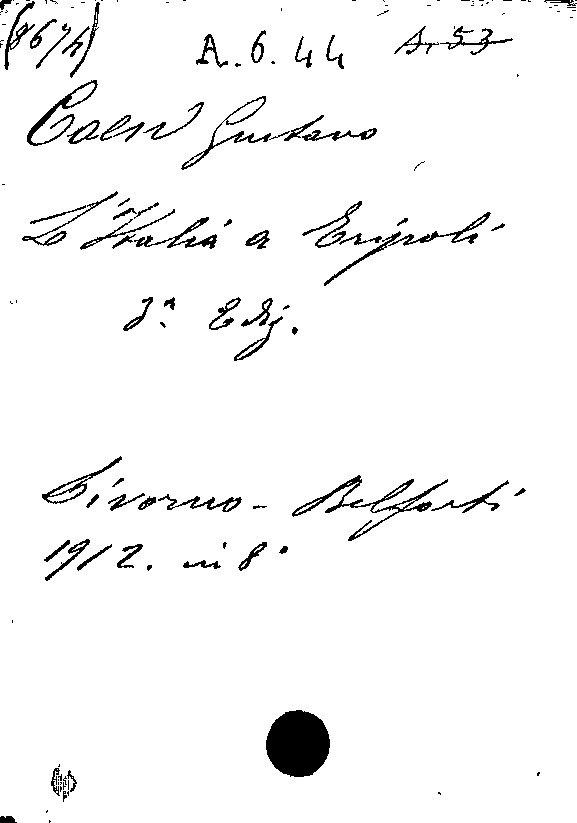 (8674) A.6.44 A.53
Coen Gustavo
L'Italia a Tripoli
3ª Ediz.
Livorno - Belforti
1912. in 8°